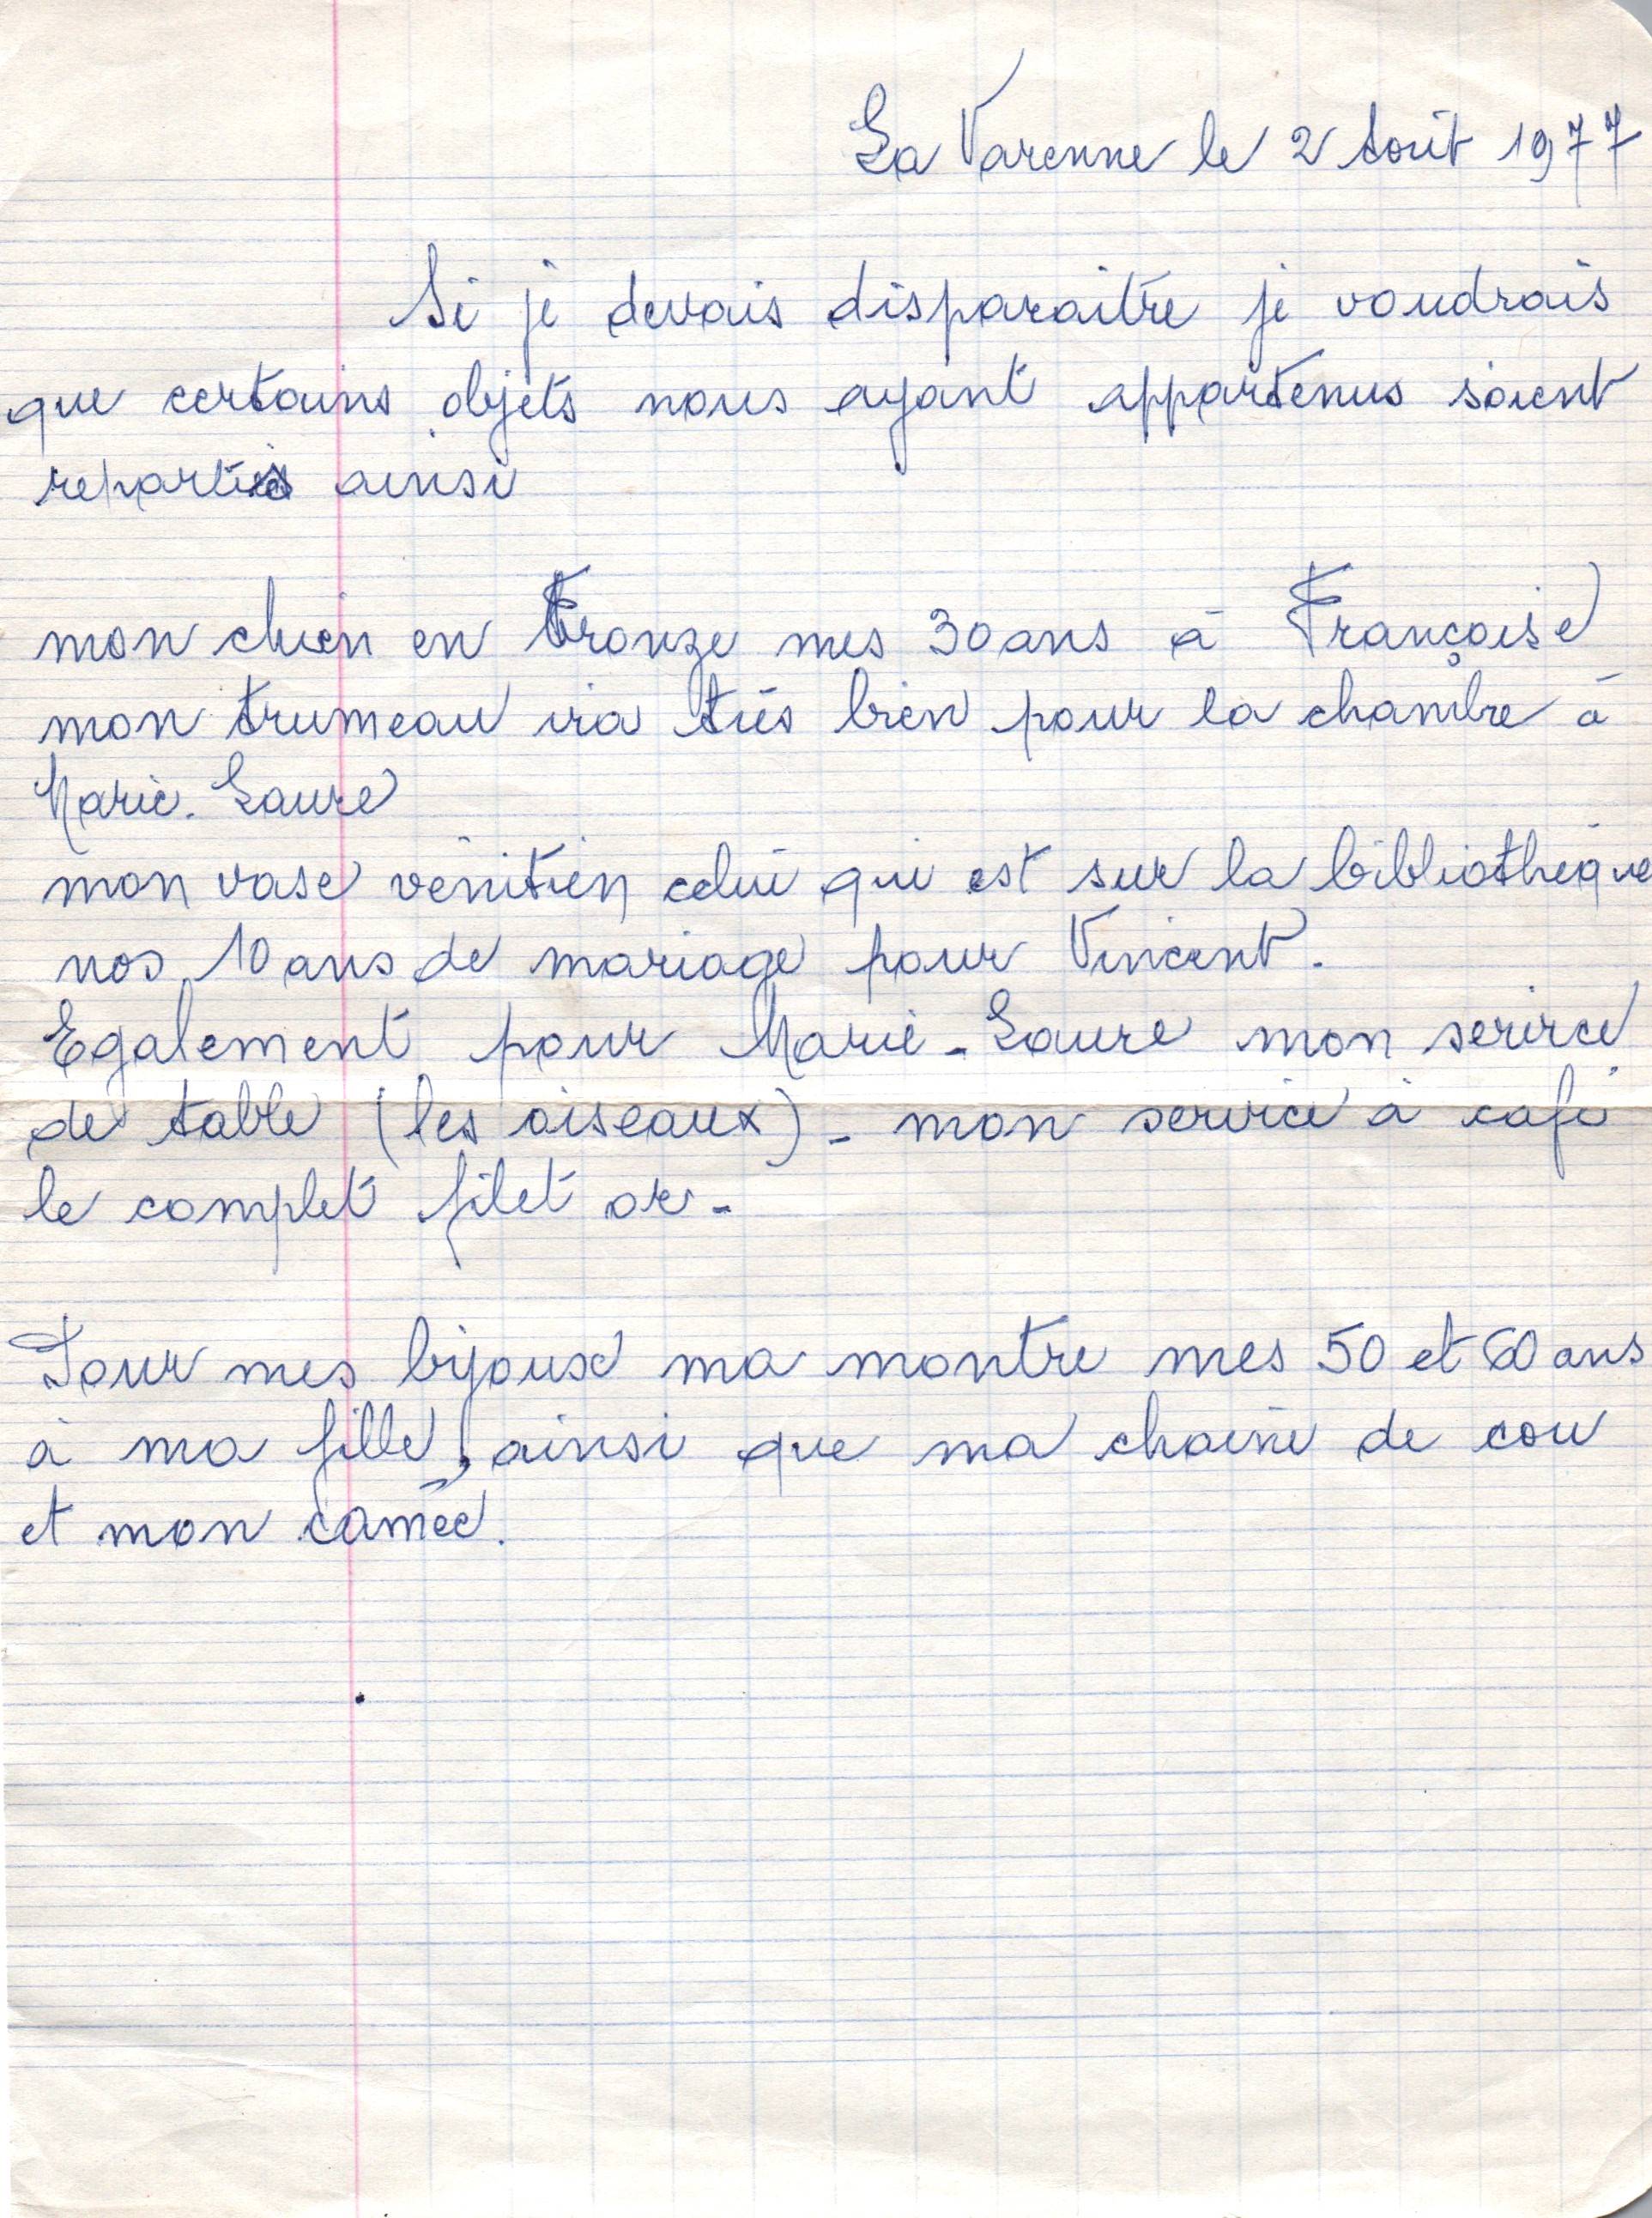 La Varenne le 2 Août 1977
Si je devais disparaitre je voudrais
que certains objets nous ayant appartenus soient
repartis ainsi
mon chien en bronze mes 30 ans à Françoise
mon trumeau ira très bien pour la chambre à
Marie. Laure
mon vase vénitien celui qui est sur la bibliothèque
nos 10 ans de mariage pour Vincent.
Egalement pour Marie-Laure mon service
de table (les oiseaux) - mon service à café
le complet filet or -
Pour mes bijoux ma montre mes 50 et 60 ans
à ma fille, ainsi que ma chaine de cou
et mon camée.